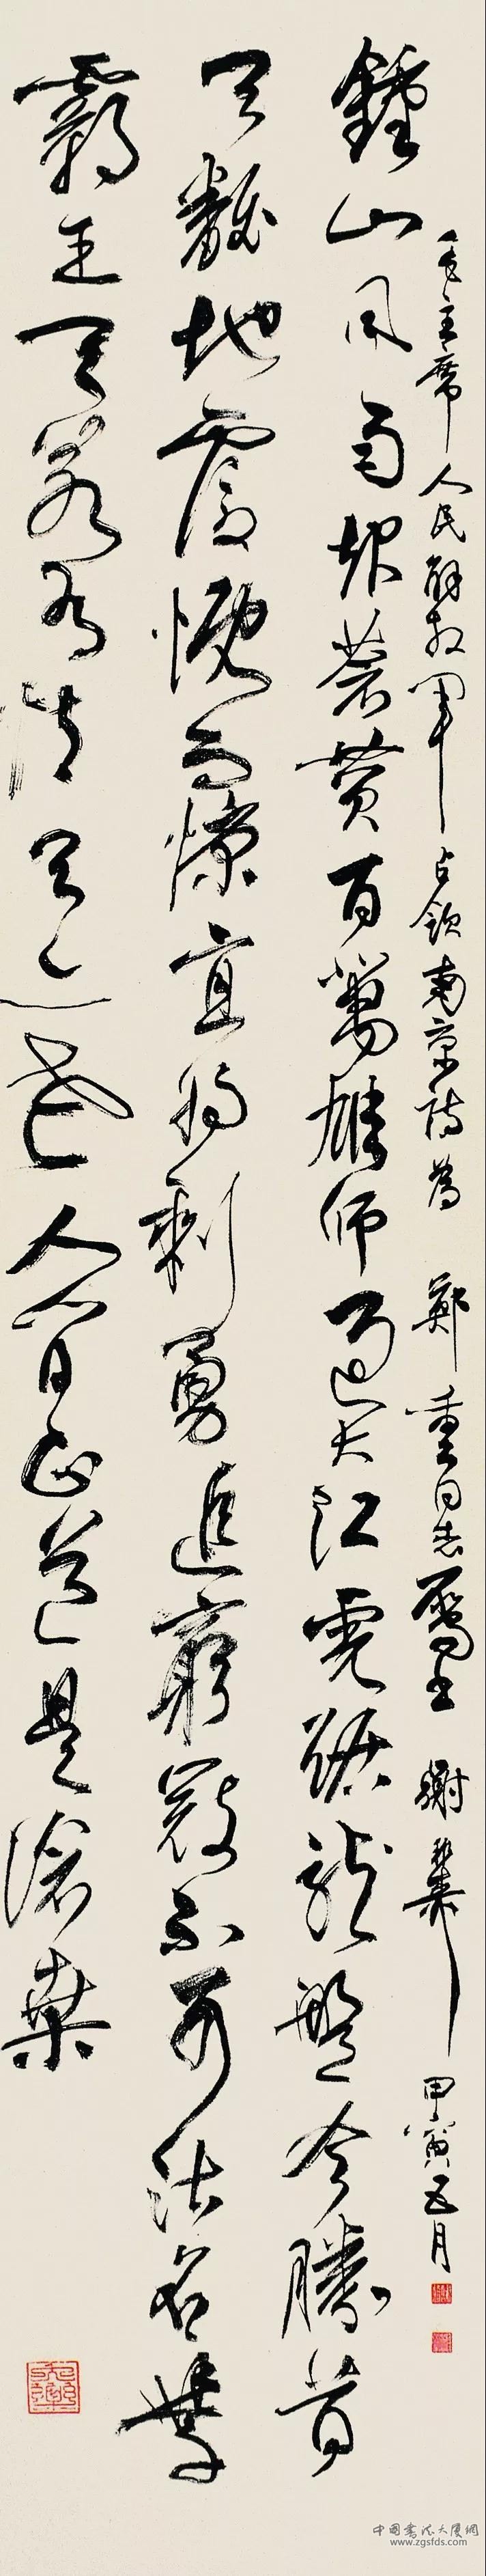 毛主席人民解放軍占領南京詩為 鄭重同志屬書 謝稚柳 甲寅五月
鍾山風雨起蒼黃百萬雄師過大江虎踞龍盤今勝昔
天翻地覆慨而慷宜將剩勇追窮寇不可沽名學
霸王天若有情天亦老人間正道是滄桑
中國書法大廈網
www.zgsfds.com